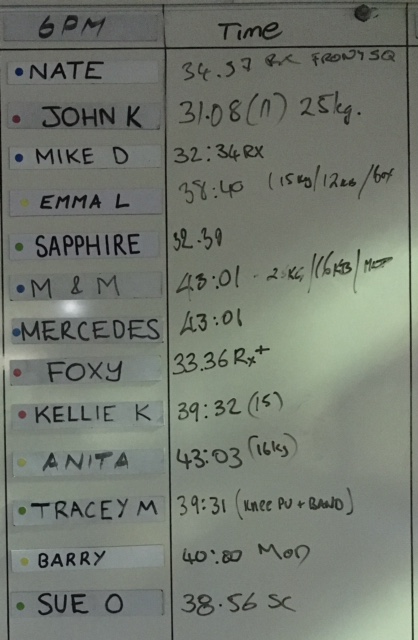 6PM Time
NATE 34.37 FRONT SQ
JOHN K 31.08 (11) 25kg.
MIKE D 32:34 RX
EMMA L 38:40 (15kg/12kg/box
SAPPHIRE 32.39
M & M 43:01
MERCEDES 43:01
FOXY 33.36 Rx+
KELLIE K 39:32 (15)
ANITA 43:03 (16kg)
TRACEY M 39:31 (Knee PU + BAND)
BARRY 40:20 Mod
SUE O 38.56 SC